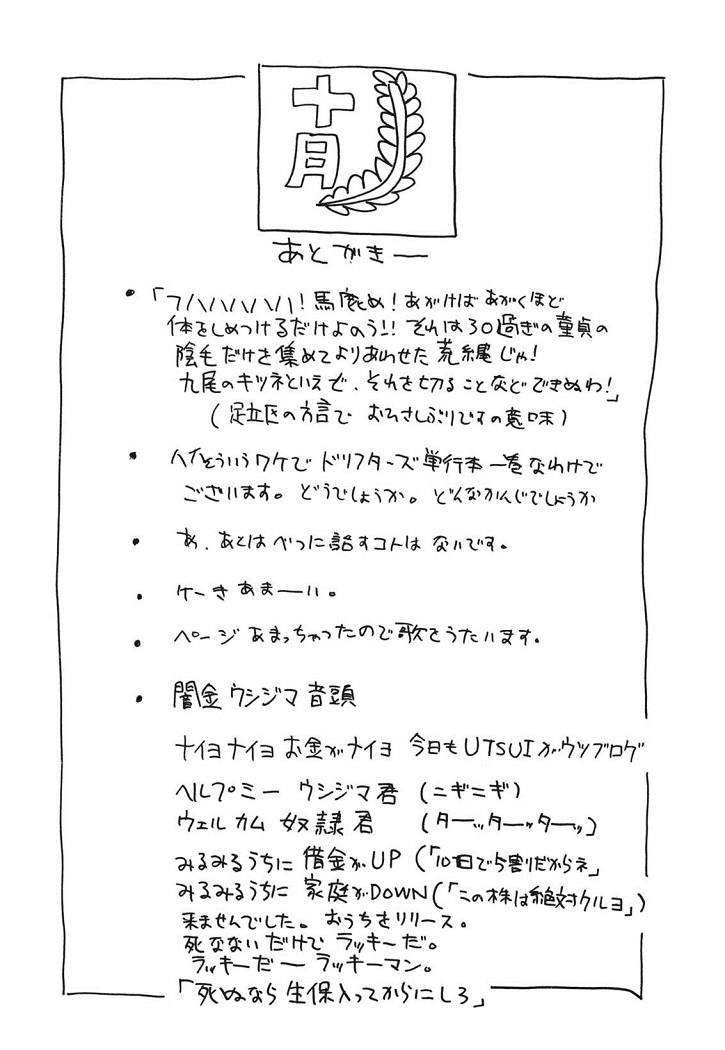 十月
あとがきー
・「フハハハハハ!馬鹿め!あがけばあがくほど
体をしめつけるだけよのう!!それは30過ぎの童貞の
陰毛だけを集めてよりあわせた荒縄じゃ!
九尾のキツネといえど、それを切ることなどできぬわ!」
(足立区の方言でおひさしぶりですの意味)
・ハイそういうワケでドリフターズ単行本一巻なわけで
ございます。どうでしょうか。どんなかんじでしょうか
・あ、あとはべつに話すコトはないです。
・ケーきあまーい。
・ページあまっちゃったので歌をうたいます。
・闇金ウシジマ音頭
ナイヨナイヨお金がナイヨ 今日もUTSUIがウツブログ
ヘルプミー ウシジマ君 (ニギニギ)
ウェルカム 奴隷君 (ターッターッターッ)
みるみるうちに 借金がUP(「10日で5割だからネ」
みるみるうちに 家庭がDOWN(「この株は絶対クルヨ」)
来ませんでした。おうちをリリース。
死なないだけでラッキーだ。
ラッキーだー ラッキーマン。
「死ぬなら生保入ってからにしろ」